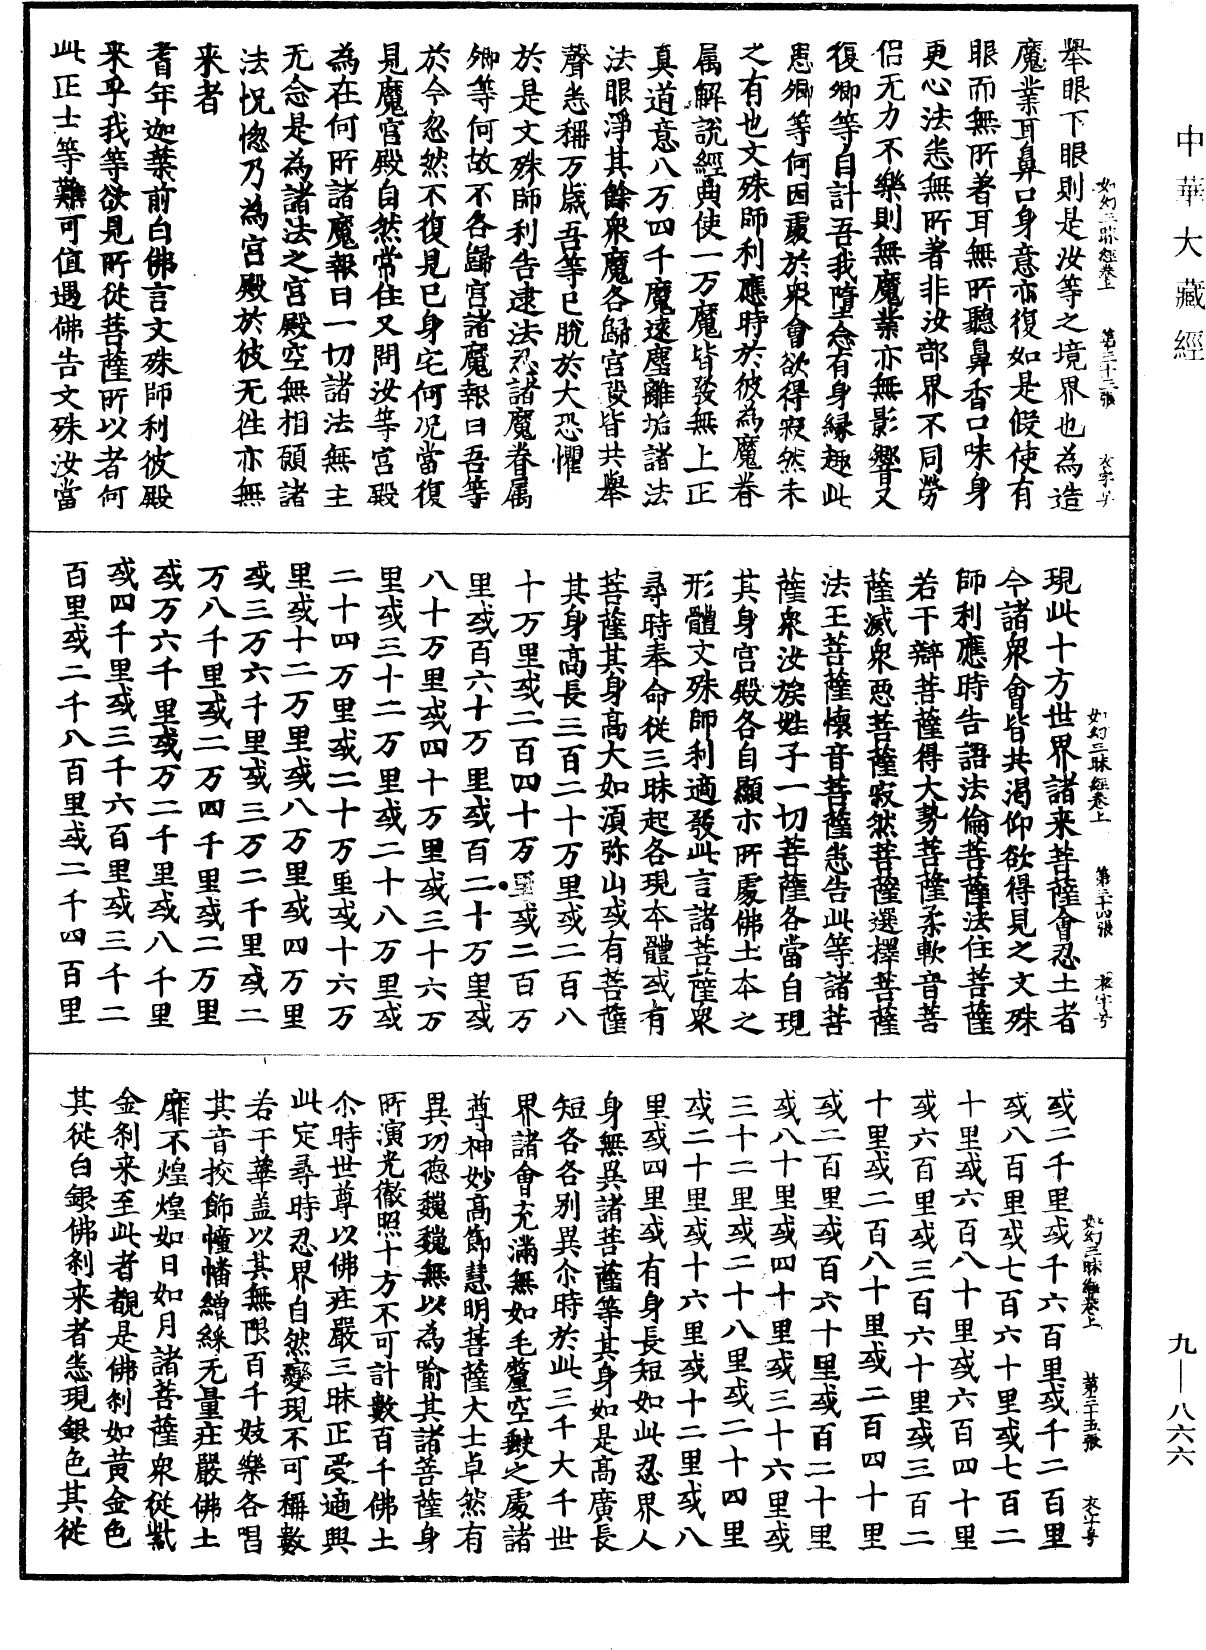 中華大藏經
如幻三昧經卷上 第三十三張 衣字号
舉眼下眼則是汝等之境界也為造
魔業耳鼻口身意亦復如是假使有
眼而無所著耳無所聽鼻香口味身
更心法悉無所著非汝部界不同勞
侶无力不樂則無魔業亦無影響又
復卿等自計吾我墮念有身緣趣此
患卿等何因處於衆會欲得寂然未
之有也文殊師利應時於彼為魔眷
属解說經典使一万魔皆發無上正
真道意八万四千魔遠塵離垢諸法
法眼淨其餘衆魔各歸宫殿皆共舉
聲悉稱万歲吾等已脫於大恐懼
於是文殊師利告逮法忍諸魔眷属
卿等何故不各歸宫諸魔報曰吾等
於今忽然不復見已身宅何况當復
見魔宫殿自然常住又問汝等宫殿
為在何所諸魔報曰一切諸法無主
无念是為諸法之宫殿空無相願諸
法怳惚乃為宫殿於彼无性亦無
来者
耆年迦葉前白佛言文殊師利彼殿
来乎我等欲見所從菩薩所以者何
此正士等難可值遇佛告文殊汝當
如幻三昧經卷上 第三十四張 衣字号
現此十方世界諸来菩薩會忍土者
今諸衆會皆共渴仰欲得見之文殊
師利應時告語法倫菩薩法住菩薩
若干辯菩薩得大勢菩薩柔軟音菩
薩滅衆惡菩薩寂然菩薩選擇菩薩
法王菩薩懷音菩薩悉告此等諸菩
薩衆汝族姓子一切菩薩各當自現
其身宫殿各自顯示所處佛土本之
形體文殊師利適發此言諸菩薩衆
尋時奉命從三昧起各現本體或有
菩薩其身高大如須弥山或有菩薩
其身高長三百二十万里或二百八
十万里或二百四十万里或二百万
里或百六十万里或百二十万里或
八十万里或四十万里或三十六万
里或三十二万里或二十八万里或
二十四万里或二十万里或十六万
里或十二万里或八万里或四万里
或三万六千里或三万二千里或二
万八千里或二万四千里或二万里
或万六千里或万二千里或八千里
或四千里或三千六百里或三千二
百里或二千八百里或二千四百里
如幻三昧經卷上 第三十五張 衣字号
或二千里或千六百里或千二百里
或八百里或七百六十里或七百二
十里或六百八十里或六百四十里
或六百里或三百六十里或三百二
十里或二百八十里或二百四十里
或二百里或百六十里或百二十里
或八十里或四十里或三十六里或
三十二里或二十八里或二十四里
或二十里或十六里或十二里或八
里或四里或有身長短如此忍界人
身無異諸菩薩等其身如是高廣長
短各各别異尒時於此三千大千世
界諸會充滿無如毛氂空缺之處諸
尊神妙高節慧明菩薩大士卓然有
異功德巍巍無以為喻其諸菩薩身
所演光徹照十方不可計數百千佛土
尒時世尊以佛庄嚴三昧正受適興
此定尋時忍界自然變現不可稱數
若干華盖以其無限百千妓樂各唱
其音挍飾幢幡繒綵无量庄嚴佛土
靡不煌煌如日如月諸菩薩衆從紫
金刹来至此者覩是佛刹如黄金色
其從白銀佛刹来者悉現銀色其從
九—八六六